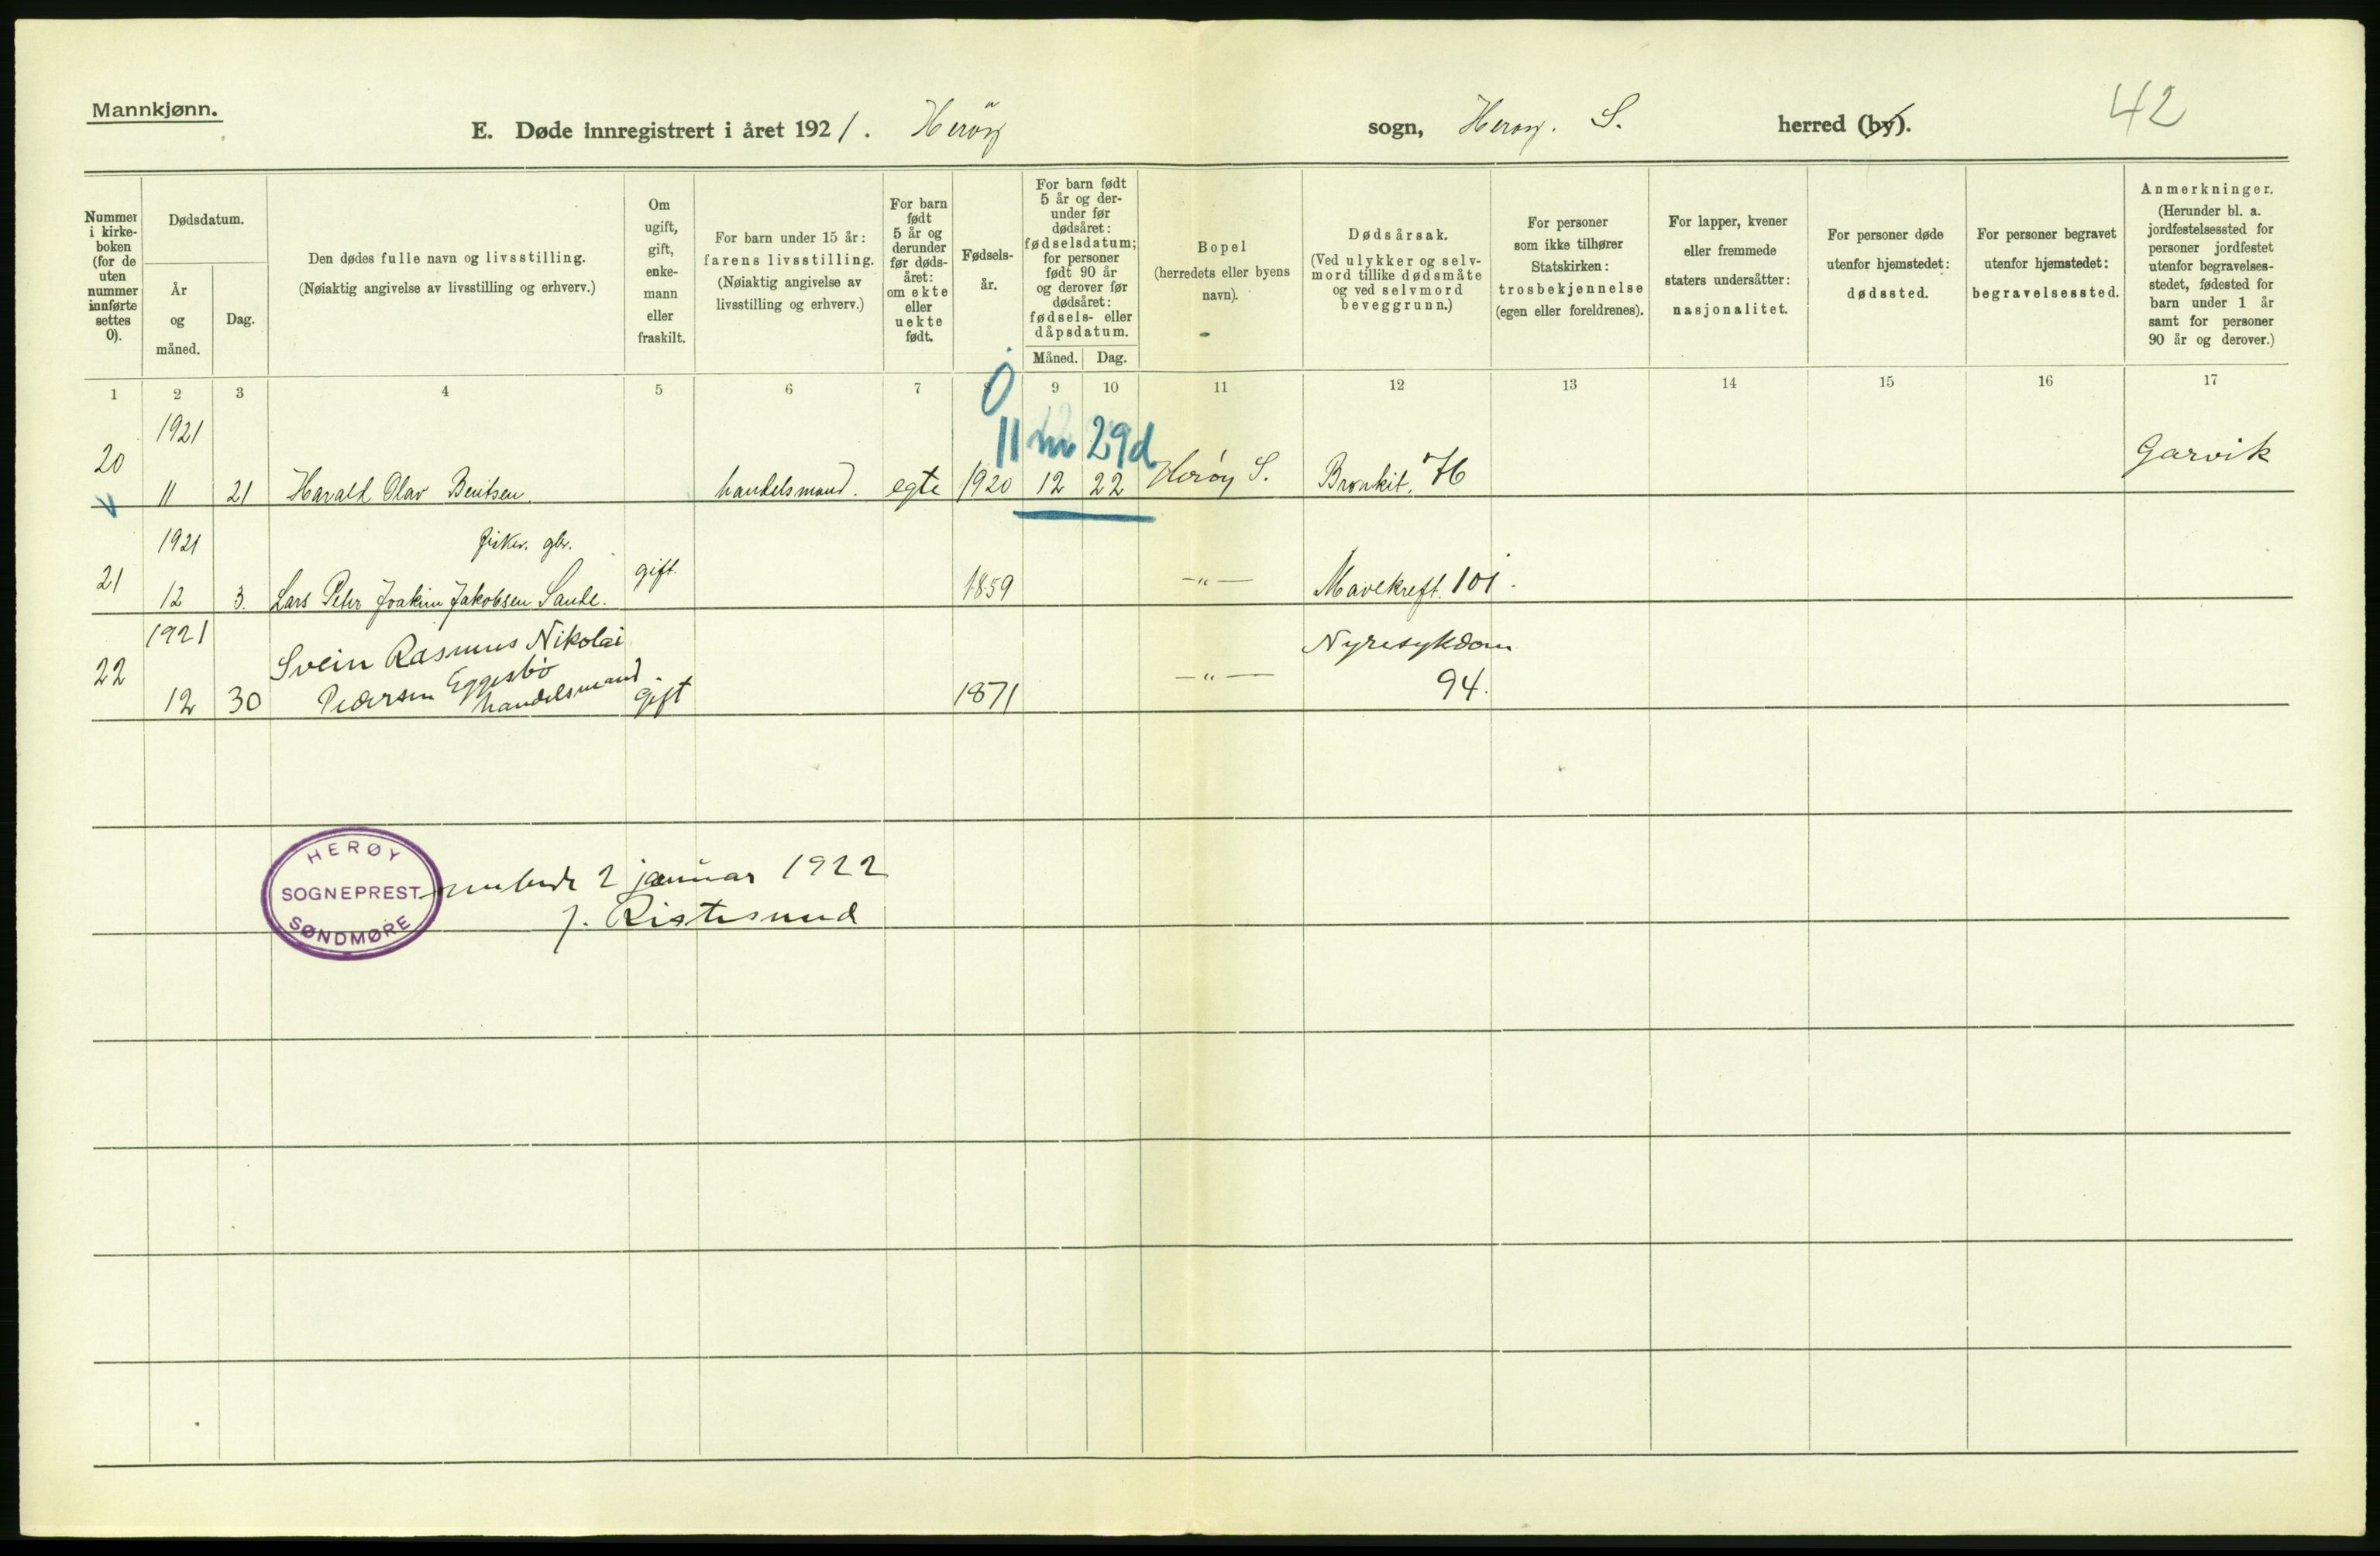 Mannkjønn.
E. Døde innregistrert i året 1921. Herøy sogn, Herøy. S. herred (by).
42
Nummer i kirke- boken (for de uten nummer innførte settes 0).
Dødsdatum.
År og måned.
Dag.
Den dødes fulle navn og livsstilling.
(Nøiaktig angivelse av livsstilling og erhverv.)
Om ugift, gift, enke- mann eller fraskilt.
For barn under 15 år:
farens livsstilling.
(Nøiaktig angivelse av
livsstilling og erhverv.)
For barn født 5 år og derunder før døds- året: om ekte eller uekte født.
Fødsels- år.
For barn født
5 år og der-
under før
dødsåret:
fødselsdatum;
for personer
født 90 år
og derover før
dødsåret:
fødsels- eller
dåpsdatum.
Måned. Dag.
Bopel
(herredets eller byens
navn).
Dødsårsak.
(Ved ulykker og selv-
mord tillike dødsmåte
og ved selvmord
beveggrunn.)
For personer
som ikke tilhører
Statskirken:
trosbekjennelse
(egen eller foreldrenes).
For lapper, kvener
eller fremmede
staters undersåtter:
nasjonalitet.
For personer døde
utenfor hjemstedet:
dødssted.
For personer begravet
utenfor hjemstedet:
begravelsessted.
Anmerkninger.
(Herunder bl. a.
jordfestelsessted for
personer jordfestet
utenfor begravelses-
stedet, fødested for
barn under 1 år
samt for personer
90 år og derover.)
1 2 3 4 5 6 7 8 9 10 11 12 13 14 15 16 17
0
1921 11 m 29 d
20 11 21 Harald Olav Bentsen handelsmand. egte 1920 12 22 Herøy S. Bronkit. 76 Garvik
1921 fisker. gbr.
21 12 3. Lars Peter Joakim Jakobsen Sande. gift. 1859 —„— Mavekreft. 101.
1921 Svein Rasmus Nikolai Nyresykdom
22 12 30 Pedersen Eggesbø handelsmand. gift 1871 —„— 94.
HERØY
SOGNEPREST
SØNDMØRE
2 januar 1922
J. Ristesund